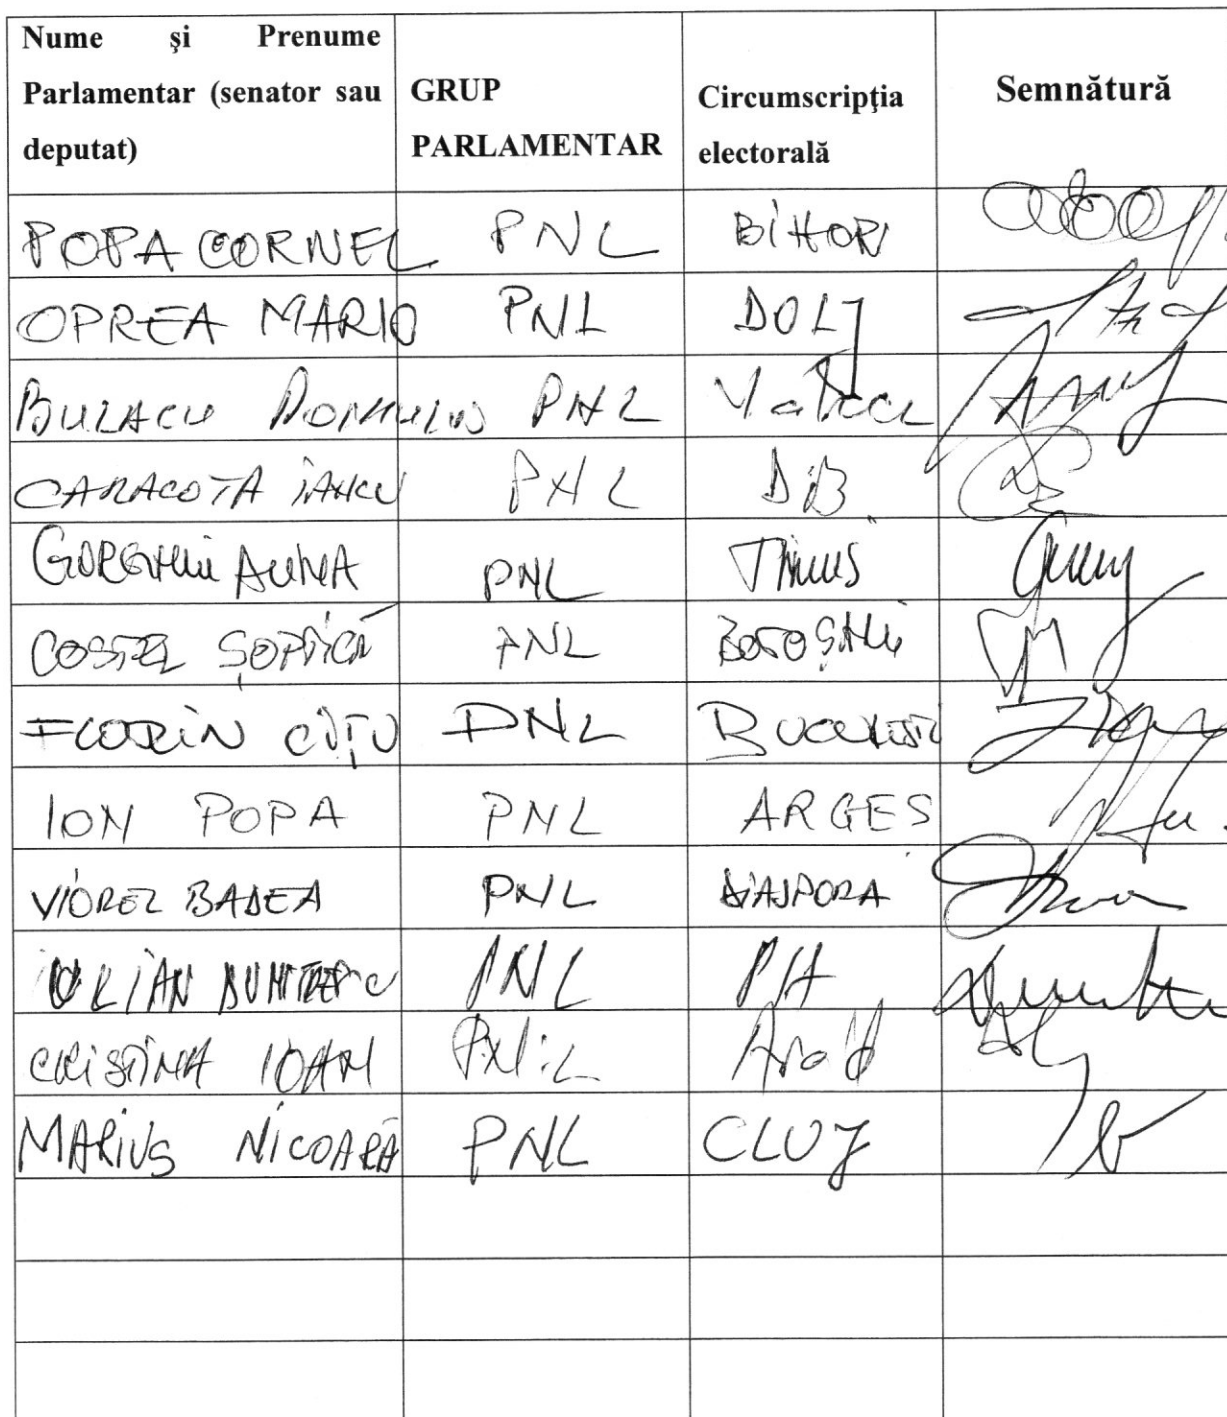 Nume şi Prenume
Parlamentar (senator sau
deputat)
GRUP
PARLAMENTAR
Circumscripţia
electorală
Semnătură
POPA CORNEL PNL BIHOR
OPREA MARIO PNL DOLJ
BULACU ROMULUS PNL Valcea
CARACOTA IANCU PNL DB
GORGHIU ALINA PNL TIMIS
COSTEL ȘOPTICĂ PNL BOTOȘANI
FLORIN CÎȚU PNL BUCUREȘTI
ION POPA PNL ARGES
VIOREL BADEA PNL DIASPORA
IULIAN DUMITRESCU PNL PH
CRISTINA IOAN PNL Arad
MARIUS NICOARĂ PNL CLUJ